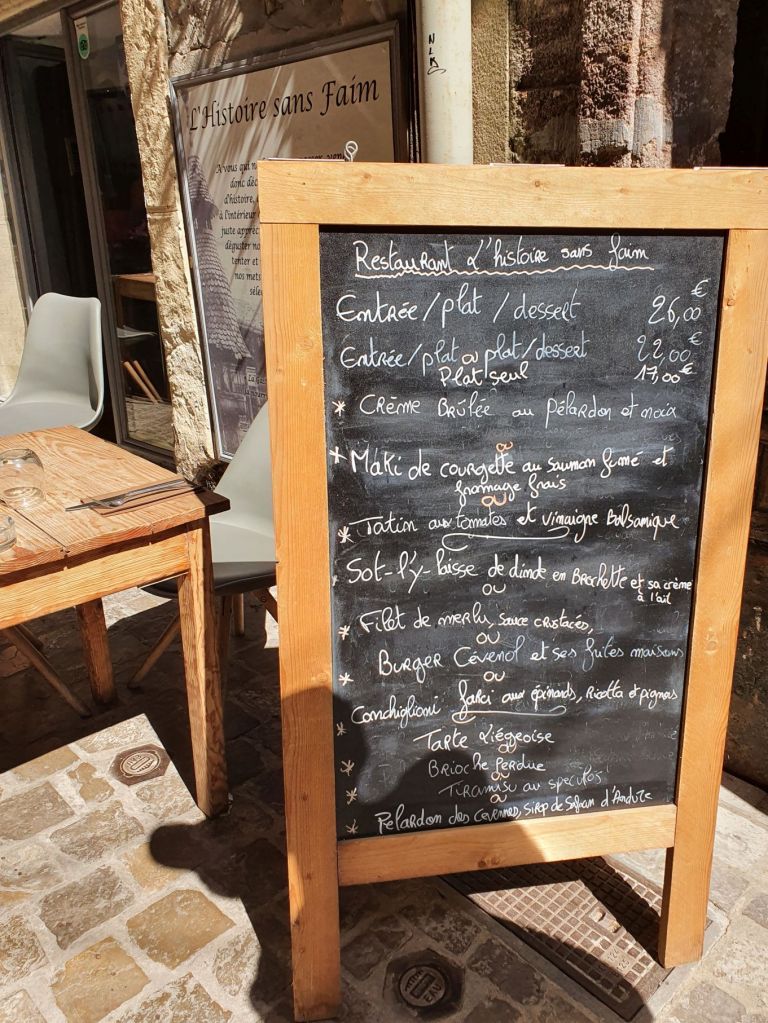 NLK
L'Histoire sans Faim
A vous qui
donc déc
d'histoire,
à l'intérieur
juste appréc
déguster
tenter et
nos mets
séle
Restaurant L'histoire sans faim
Entrée/plat/dessert 26,00€
Entrée/plat ou plat/dessert 22,00€
Plat seul 17,00€
* Crème Brûlée au Pélardon et noix
ou
* Máki de courgette au saumon fumé et
fromage frais
ou
* Tatin aux tomates et vinaigre Balsamique
Sot-l'y-laisse de dinde en Brochette et sa crème
à l'ail
ou
* Filet de merlu, sauce crustacés,
ou
* Burger Cévenol et ses frites maisons
ou
* Conchiglioni farci aux épinards, Ricotta et pignons
* Tarte Liégeoise
ou
* Brioche perdue
ou
* Tiramisu au speculos
ou
* Pelardon des Cevennes, Sirop de Safran d'Anduze
EAU